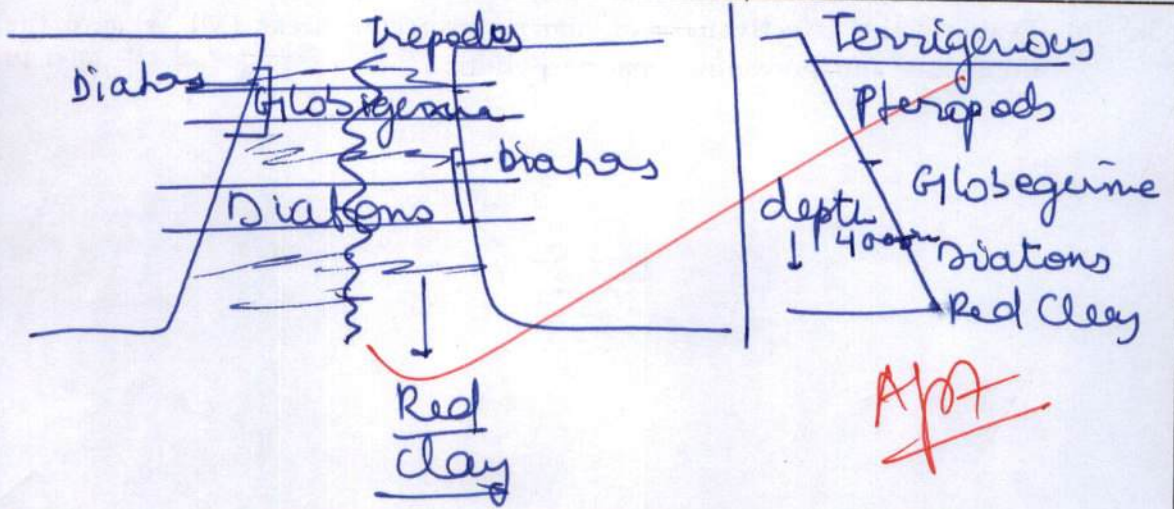 Trepodes
Diatos
Globigerine
Diatos
Diatons
Red
Clay
Terrigenous
Pteropods
Globegerine
depth
4000m
Diatons
Red Clay
Apt